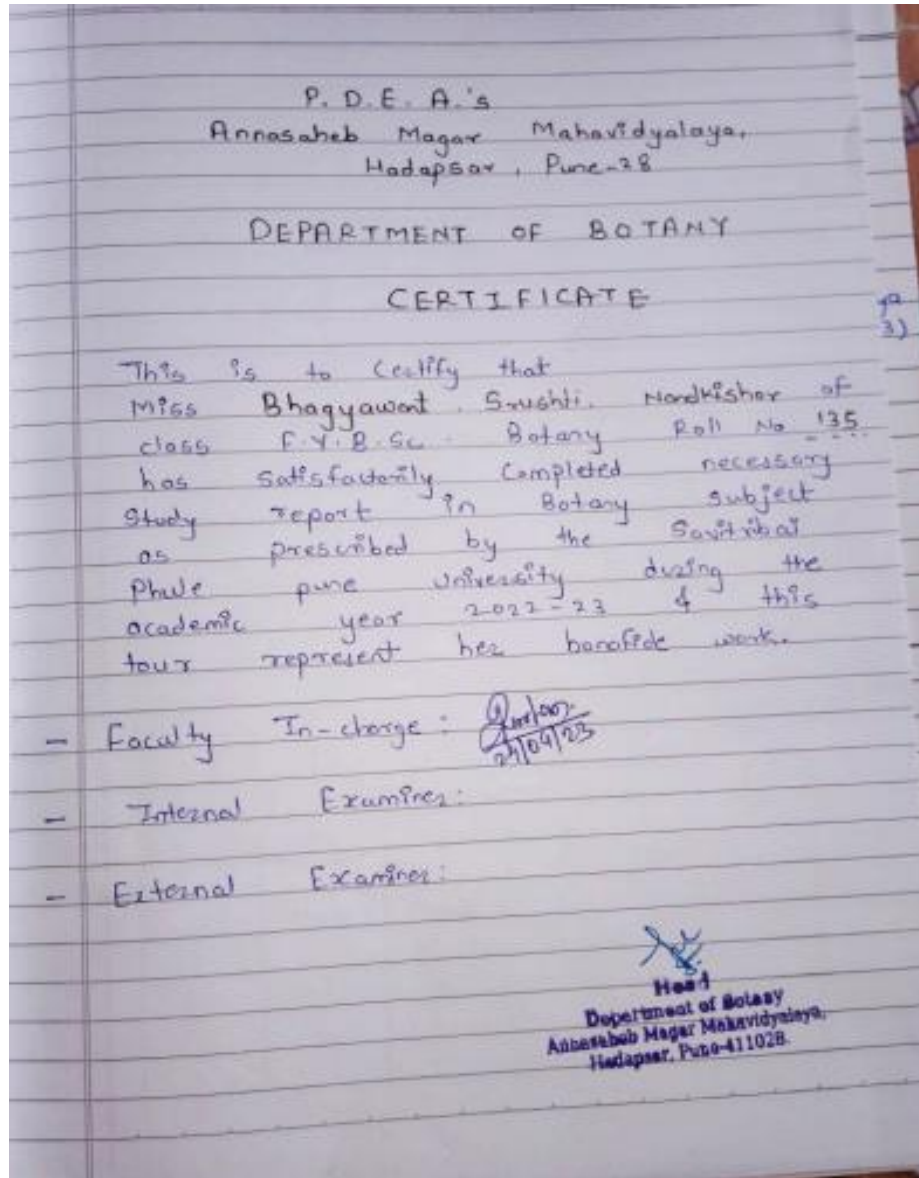 P. D. E. A.'s
Annasaheb Magar Mahavidyalaya,
Hadapsar, Pune-28
DEPARTMENT OF BOTANY
CERTIFICATE
This is to Certify that
Miss Bhagyawant. Srushti. Nandkishor of
class F.Y.B.Sc. Botany Roll No 135
has Satisfactorily Completed necessary
Study report in Botany subject
as prescribed by the Savitribai
Phule pune University during the
academic year 2022-23 & this
tour represent her bonafide work.
- Faculty In-charge:
24/04/23
- Internal Examiner:
- External Examiner:
Head
Department of Botany
Annasaheb Magar Mahavidyalaya,
Hadapsar, Pune-411028.